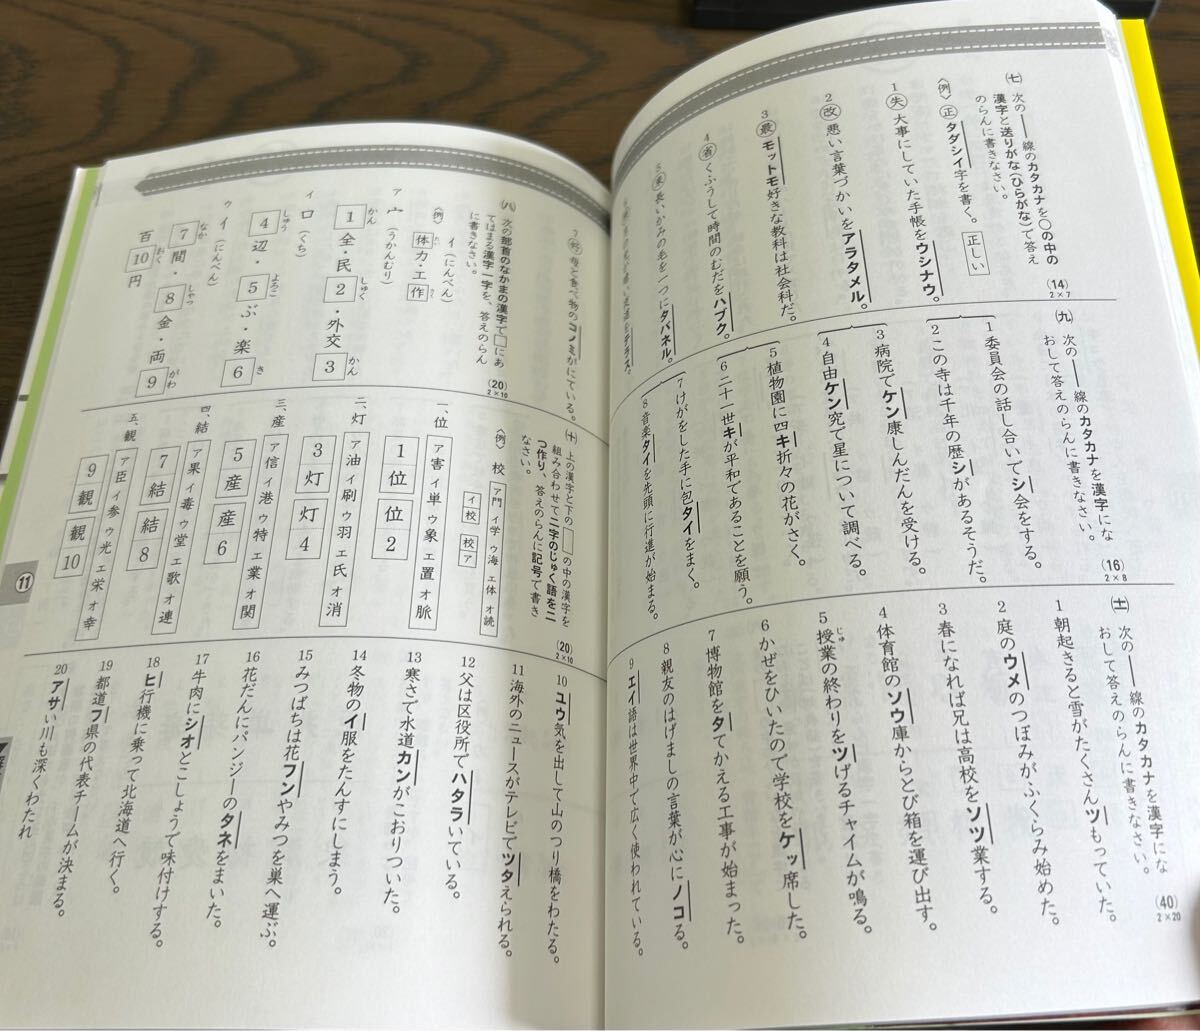 ㈦ 次の――線のカタカナを○の中の
漢字と送りがな(ひらがな)で答え
のらんに書きなさい。
(14)
2×7
〈例〉 正 タダシイ字を書く。 正しい
1 失 大事にしていた手帳をウシナウ。
2 改 悪い言葉づかいをアラタメル。
3 最 モットモ好きな教科は社会科だ。
4 省 くふうして時間のむだをハブク。
5 束 長いかみの毛を一つにタバネル。
テラス。
7 母と食べ物のコノミがにている。
㈧ 次の部首のなかまの漢字で□にあ
てはまる漢字一字を、答えのらん
に書きなさい。
(20)
2×10
〈例〉 イ(にんべん)
体力・工作
たい
さく
ア 宀(うかんむり)
1全・民2・外交3
かん
しゅく
かん
イ 口(くち)
4辺・5ぶ・楽6
しゅう
よろこ
き
ウ イ(にんべん)
7間・8金・両9
なか
しゃっ
がわ
百10円
おく
㈨ 次の――線のカタカナを漢字にな
おして答えのらんに書きなさい。
(16)
2×8
1 委員会の話し合いでシ会をする。
2 この寺は千年の歴シがあるそうだ。
3 病院でケン康しんだんを受ける。
4 自由ケン究で星について調べる。
5 植物園に四キ折々の花がさく。
6 二十一世キが平和であることを願う。
7 けがをした手に包タイをまく。
8 音楽タイを先頭に行進が始まる。
㈩ 上の漢字と下の□の中の漢字を
組み合わせて二字のじゅく語を二
つ作り、答えのらんに記号で書き
なさい。
(20)
2×10
〈例〉 校 ア門 イ学 ウ海 エ体 オ読
イ校 校ア
一、位 ア害 イ単 ウ象 エ置 オ脈
1位 位2
二、灯 ア油 イ刷 ウ羽 エ氏 オ消
3灯 灯4
三、産 ア信 イ港 ウ特 エ業 オ関
5産 産6
四、結 ア果 イ毒 ウ堂 エ歌 オ連
7結 結8
五、観 ア臣 イ参 ウ光 エ栄 オ幸
9観 観10
(十一) 次の――線のカタカナを漢字にな
おして答えのらんに書きなさい。
(40)
2×20
1 朝起きると雪がたくさんツもっていた。
2 庭のウメのつぼみがふくらみ始めた。
3 春になれば兄は高校をソツ業する。
4 体育館のソウ庫からとび箱を運び出す。
5 授業の終わりをツげるチャイムが鳴る。
じゅ
6 かぜをひいたので学校をケッ席した。
7 博物館をタてかえる工事が始まった。
8 親友のはげましの言葉が心にノコる。
9 エイ語は世界中で広く使われている。
10 ユウ気を出して山のつり橋をわたる。
11 海外のニュースがテレビでツタえられる。
12 父は区役所でハタラいている。
13 寒さで水道カンがこおりついた。
14 冬物のイ服をたんすにしまう。
15 みつばちは花フンやみつを巣へ運ぶ。
16 花だんにパンジーのタネをまいた。
17 牛肉にシオとこしょうで味付けする。
18 ヒ行機に乗って北海道へ行く。
19 都道フ県の代表チームが決まる。
20 アサい川も深くわたれ
11